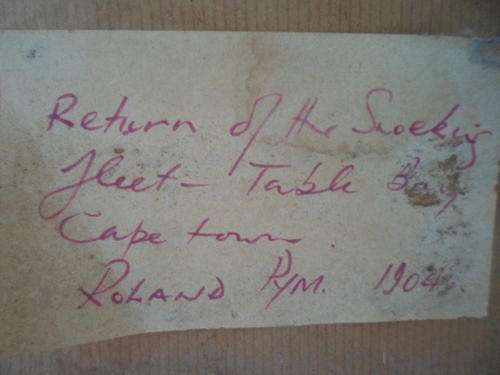 Return of the Snoeking
fleet - Table Bay
Cape town.
ROLAND PYM. 1904